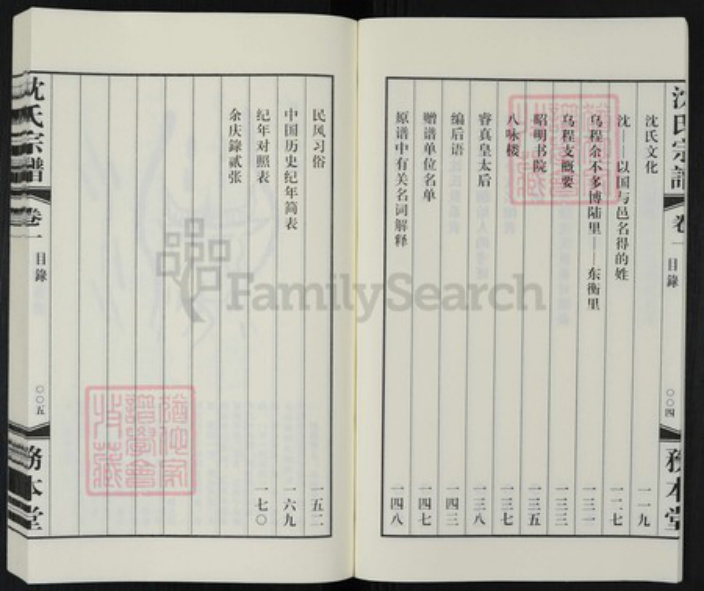 沈氏宗譜
卷一
目錄
〇〇四
務本堂
沈氏文化
一一九
沈——以国与邑名得的姓
一二七
乌程余不乡博陆里——东衡里
一三一
乌程支概要
一三三
昭明书院
一三五
八咏楼
一三七
睿真皇太后
一三八
编后语
一四三
赠谱单位名单
一四七
原谱中有关名词解释
一四八
民风习俗
一五二
中国历史纪年简表
一六九
纪年对照表
一七〇
余庆錄贰张
沈氏宗譜
卷一
目錄
〇〇五
務本堂
FamilySearch